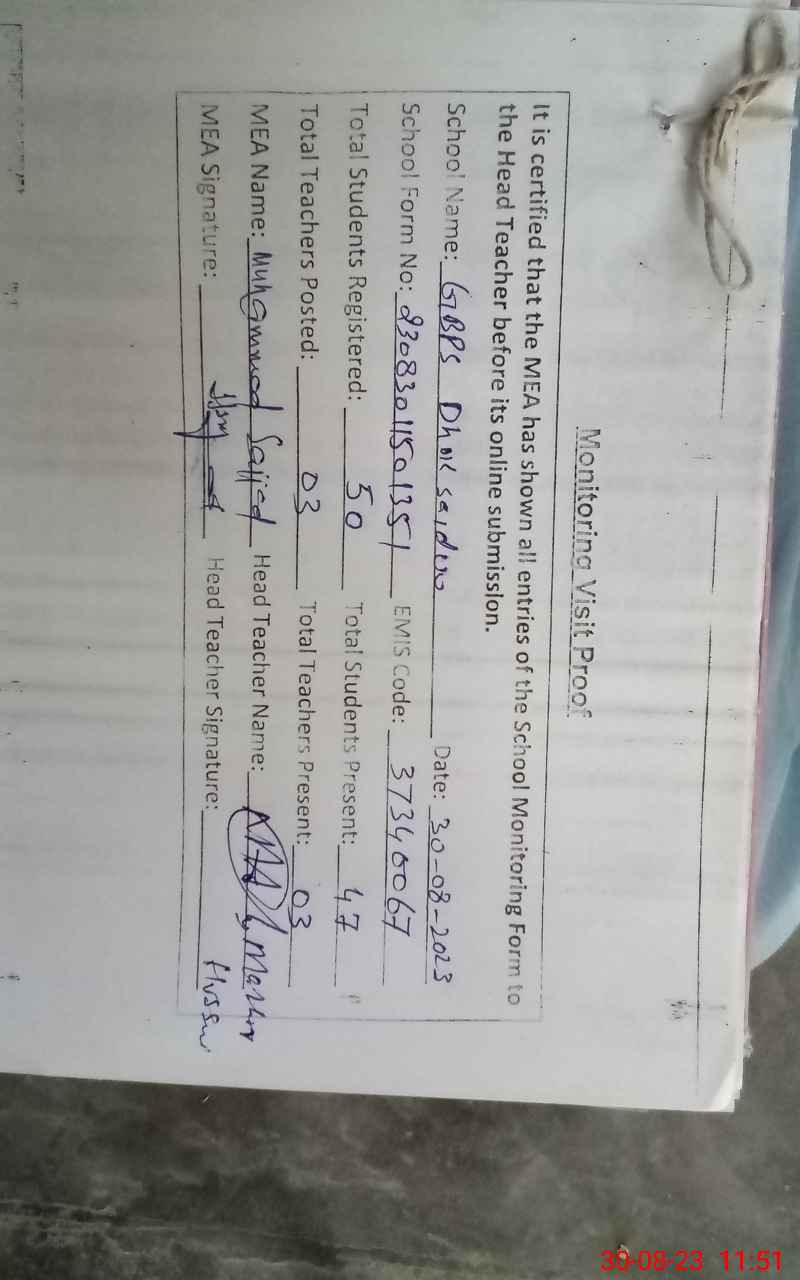 Monitoring Visit Proof
It is certified that the MEA has shown all entries of the School Monitoring Form to
the Head Teacher before its online submission.
School Name: GBPS Dhok Date: 30-08-2023
School Form No: 23083011501351 EMIS Code: 37340067
Total Students Registered: 50 Total Students Present: 47
Total Teachers Posted: 03 Total Teachers Present: 03
MEA Name: Muhammad Sajjad Head Teacher Name:
MEA Signature: Head Teacher Signature:
30-08-23 11:51